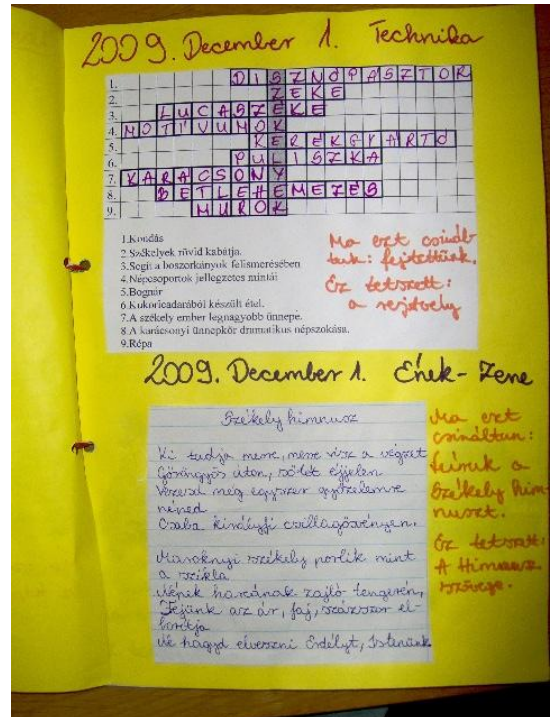 2009. December 1. Technika
1. DISZNÓPÁSZTOR
2. ZEKE
3. LUCASZÉKE
4. MOTÍVUMOK
5. KEREKGYÁRTÓ
6. PULISZKA
7. KARÁCSONY
8. BETLEHEMEZÉS
9. MUROK
1.Kondás
2.Székelyek rövid kabátja.
3.Segít a boszorkányok felismerésében
4.Népcsoportok jellegzetes mintái
5.Bognár
6.Kukoricadarából készült étel.
7.A székely ember legnagyobb ünnepe.
8.A karácsonyi ünnepkör dramatikus népszokása.
9.Répa
Ma ezt csinál-
tuk: fejtettünk.
Ez tetszett:
a rejtvény
2009. December 1. Ének-Zene
Székely himnusz
Ki tudja merre, merre visz a végzet
Göröngyös úton, sötét éjjelen
Vezesd még egyszer győzelemre
néped
Csaba királyfi csillagösvényen.
Maroknyi székely porlik mint
a szikla
Népek harcának zajló tengerén,
Fejünk az ár, jaj, százszor el-
borítja
Ne hagyd elveszni Erdélyt, Istenünk
Ma ezt
csináltun:
leírtuk a
Székely him-
nuszt.
Ez tetszett:
A Himnusz
szövege.